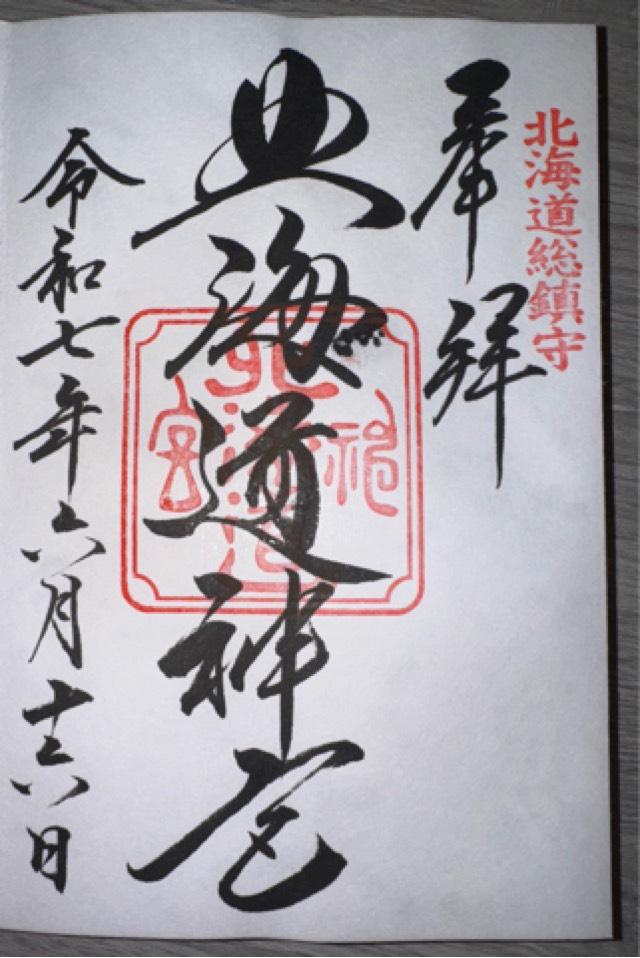 北海道総鎮守
奉拝
北海道神宮
北海道神宮
令和七年六月十六日